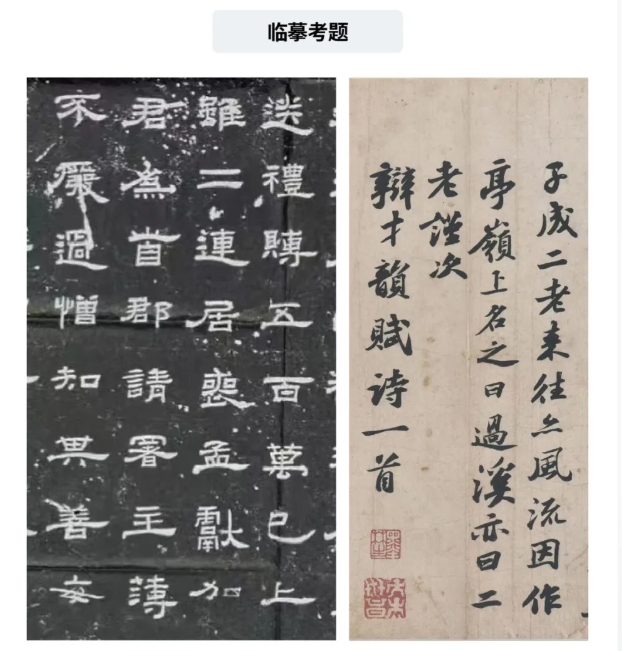 临摹考题
送禮賻五百萬已上
雖二連居喪孟獻加
君為首郡請署主薄
不嚴過憎知其善每
子成二老来往亦風流因作
亭嶺上名之曰過溪亦曰二
老謹次
辯才韻賦詩一首